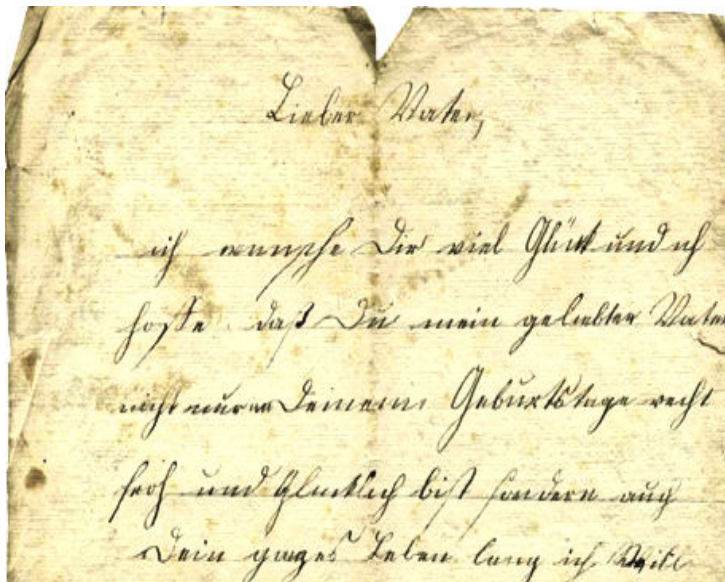 Lieber Vater,
ich wunsche Dir viel Glück und ich
hoffe daß Du mein geliebter Vater
nicht nur an Deinem Geburtstage recht
froh und Glucklich bist sondern auch
Dein ganzes Leben lang ich Will